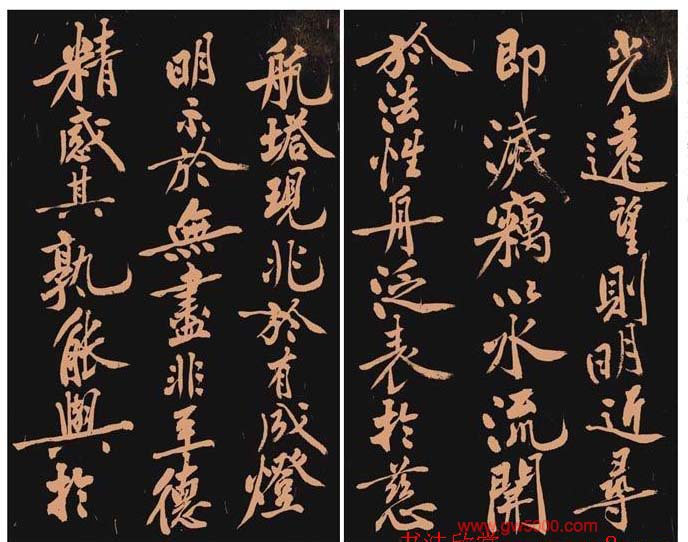 光遠望則明近尋
即滅竊以水流開
於法性舟泛表於慈
航塔現兆於有成燈
明示於無盡非至德
精感其孰能與於
www.gw5000.com